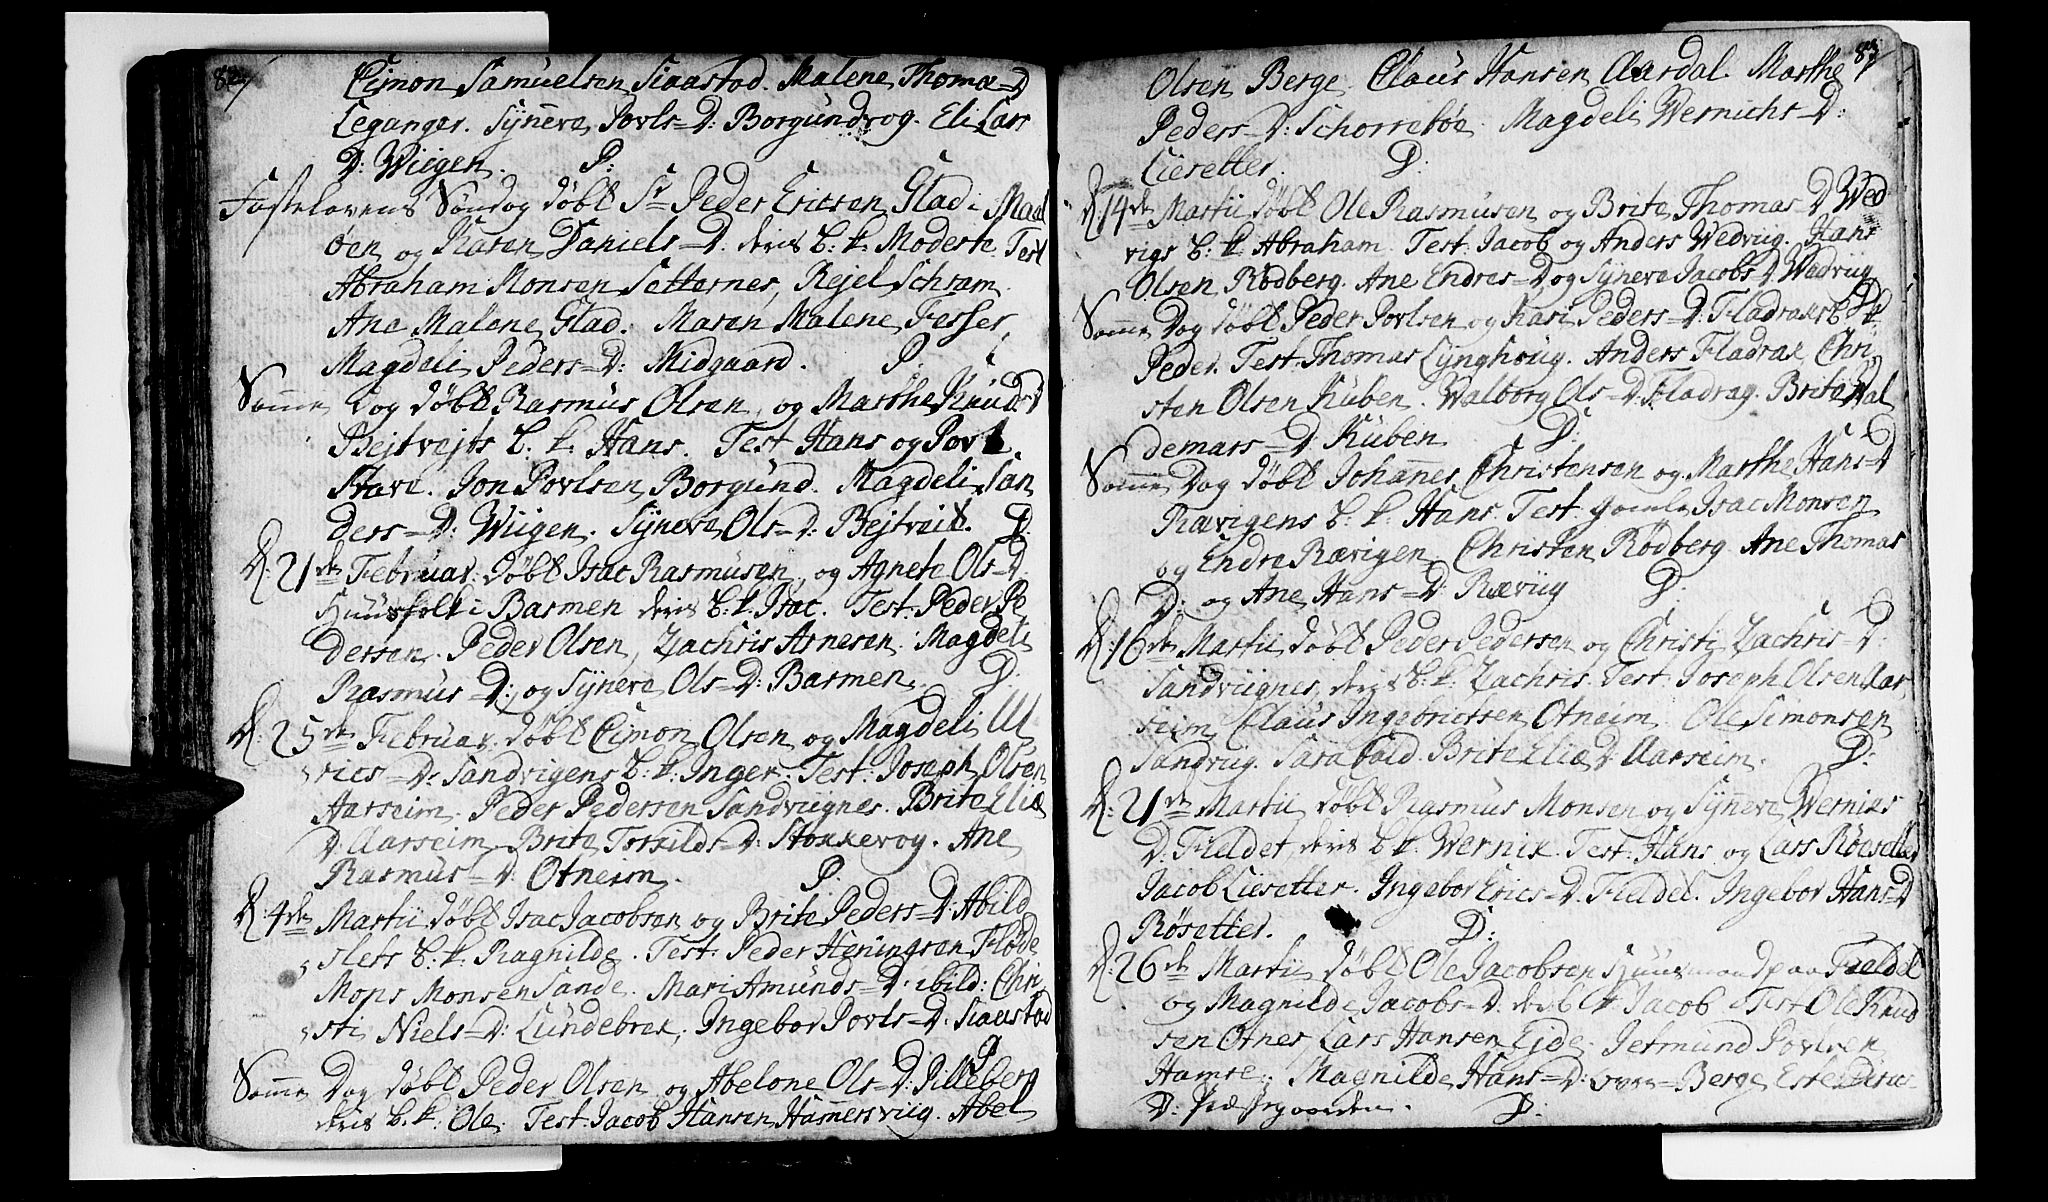 82
Cimon Samuelsen Staastad. Malene Thomæ=D
Leganger. Synneve Povls=D: Borgundvog. Eli Lars
D: Wiigen. P:
Fastelavens Søndag døbt Sr Peder Ericsen Glad i Maal
øen og Karen Daniels=D: deris b: k: Modeste. Test
Abraham Monsen Setternes, Rejel Schram.
Ane Malene Glad. Maren Malene Fesser,
Magdeli Peders=D: Midgaard. P
Samme Dag døbt Rasmus Olsen, og Marthe Knuds D
Bejtvejts b: k: Hans. Test Hans og Povl
Stave. Jon Povlsen Borgund. Magdeli San
ders=D: Wiigen. Synneve Ols=D: Bejtveit. D:
D: 21de Februar: døbt Isac Rasmusen, og Agnete Ols=D.
Huusfolk i Barmen deris b: k: Isac. Test: Peder Pe
dersen. Peder Olsen, Zachris Arnesen. Magdeli
Rasmus=D:, og Synneve Ols=D: Barmen. D.
D: 25de Februar. døbt Cimon Olsen og Magdeli Ul
rics=D: Sandvigens b: k: Inger. Test: Joseph Olsen
Aarseim. Peder Pedersen Sandviignes. Brite Eliæ
D: Aarseim. Brite Torkilds=D: Stokkevog. Ane
Rasmus=D: Otneim. P.
D: 4de Martii døbt Isac Jacobsen og Brite Peders=D: Abild
slets b: k: Ragnilde. Test: Peder Heningsen Fløde
Mons Monsen Sande. Mari Amunds=D: ibild: Chri
sti Niels=D: Lundebrek, Ingebor Povls=D: Staastad
P
Samme Dag døbt Peder Olsen og Abelone Ols=D: Pilleberg
deris b: k: Ole. Test: Jacob Hansen Hammersviig. Abel
83
Olsen Berge. Claus Hansen Aardal. Marthe
Peders=D: Schorrebøe. Magdeli Wernichs=D:
Liesetter. D:
D: 14de Martii døbt Ole Rasmusen og Brite Thomas=D Wed
vigs b: k: Abraham. Test: Jacob og Anders Wedvug. Hans
Olsen Rødberg. Ane Endres=D og Synneve Jacobs D Wedviig
D:
Samme Dag døbt Peder Povlsen og Kari Peders=D: Fladraks b: k:
Peder. Test: Thomas Lynghoug. Anders Fladrak, Chri
sten Olsen Kuben. Walborg Ols=D: Fladrag. Brite Wal
demars=D: Kuben. D:
Samme Dag døbt Johannes Christensen og Marthe Hans=D
Rævigens b: k: Hans Test: gamle Isac Monsen
og Endre Rævigen, Christen Rødberg. Ane Thomas
D: og Ane Hans=D: Ræviig D.
D: 16de Martii døbt Peder Pedersen og Christi Zachris=D:
Sandviignes, deris b: k: Zachris. Test: Joseph Olsen Aar
seim Claus Ingebrictsen Otneim. Ole Simonsen
Sandvug. Sara bald. Brite Eliæ D Aarseim. D:
D: 21de Martii døbt Rasmus Monsen og Synneve Werniks
D: Fieldet, deris b: k: Wernik. Test: Hans og Lars Røesetter
Jacob Liesetter. Ingebor Erics=D: Fieldet. Ingebor Hans=D
Røsetter. D:
D: 26de Martii døbt Ole Jacobsen Huusmand paa Fieldet
og Magnilde Jacobs=D: deris b: k: Jacob. Test: Ole Knud
sen Otnes, Lars Hansen Ejde. Jetmund Povlsen
Hamre. Magnilde Hans=D: Berge
D: Præstgaarden. D: